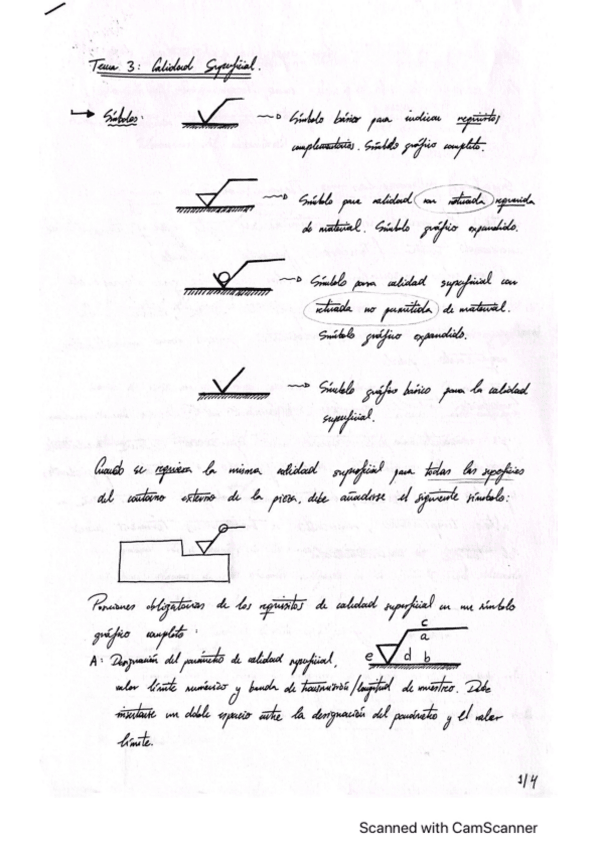 Tema 3: Calidad Superficial.
Símbolos:
Símbolo básico para indicar requisitos
complementarios. Símbolo gráfico completo.
Símbolo para calidad con retirada requerida
de material. Símbolo gráfico expandido.
Símbolo para calidad superficial con
retirada no permitida de material.
Símbolo gráfico expandido.
Símbolo gráfico básico para la calidad
superficial.
Cuando se requiera la misma calidad superficial para todas las superficies
del contorno externo de la pieza, debe añadirse el siguiente símbolo:
Posiciones obligatorias de los requisitos de calidad superficial en un símbolo
gráfico completo:
c
a
e d b
A: Designación del parámetro de calidad superficial,
valor límite numérico y banda de transmisión/longitud de muestreo. Debe
insertarse un doble espacio entre la designación del parámetro y el valor
límite.
1/4
Scanned with CamScanner